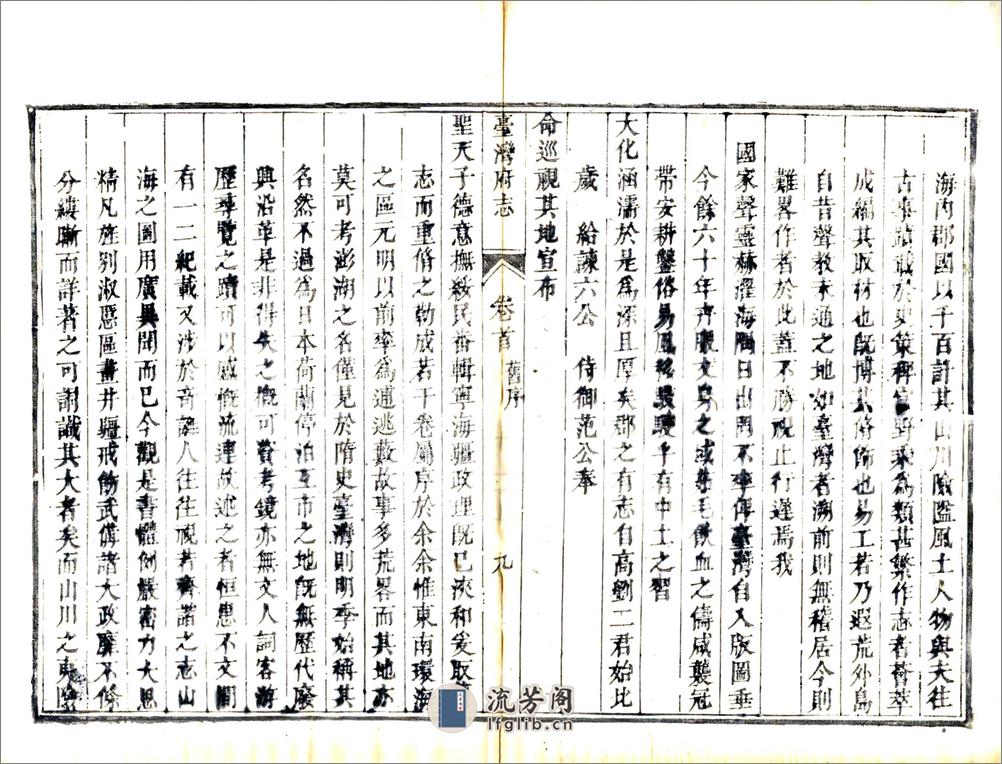 海內郡國以千百計其山川險隘風土人物與夫往
古事蹟載於史策稗官野乘為類甚繁作志者薈萃
成編其取材也既博其脩飾也易工若乃遐荒外島
自昔聲教未通之地如臺灣者溯前則無稽居今則
難畧作者於此蓋不勝視止行遲焉我
國家聲靈赫濯海隅日出罔不率俾臺灣自入版圖垂
今餘六十年卉服文身之或茹毛飲血之儔咸襲冠
帶安耕鑿俗易風移駸駸乎有中土之習
大化涵濡於是為深且厚矣郡之有志自高劉二君始比
歲 給諫六公 侍御范公奉
命巡視其地宣布
臺灣府志 卷首 舊序 九
聖天子德意撫綏民番輯寧海疆政理既已浹和爰取
志而重脩之勒成若干卷屬序於余余惟東南環海
之區元明以前率為逋逃藪故事多荒畧而其地亦
莫可考澎湖之名僅見於隋史臺灣則明季始稱其
名然不過為日本荷蘭停泊互市之地既無歷代廢
興沿革是非得失之概可資考鏡亦無文人詞客游
歷尋覽之蹟可以感慨流連故述之者恒患不文間
有一二紀載又涉於奇誕人往往視若齊諧之志山
海之圖用廣異聞而已今觀是書體例嚴密力大思
精凡旌別淑慝區畫井疆戒飭武備諸大政靡不條
分縷晰而詳著之可謂識其大者矣而山川之
流芳阁
lfglib.com